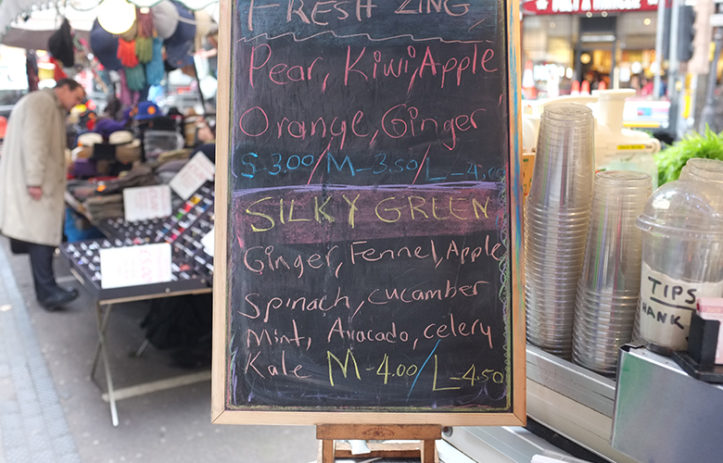 FRESH ZING
Pear, Kiwi, Apple
Orange, Ginger
S 3.00/M-3.50/L-4.00
SILKY GREEN
Ginger, Fennel, Apple
Spinach, cucamber
Mint, Avocado, celery
Kale M-4.00/L-4.50
TIPS
HANK